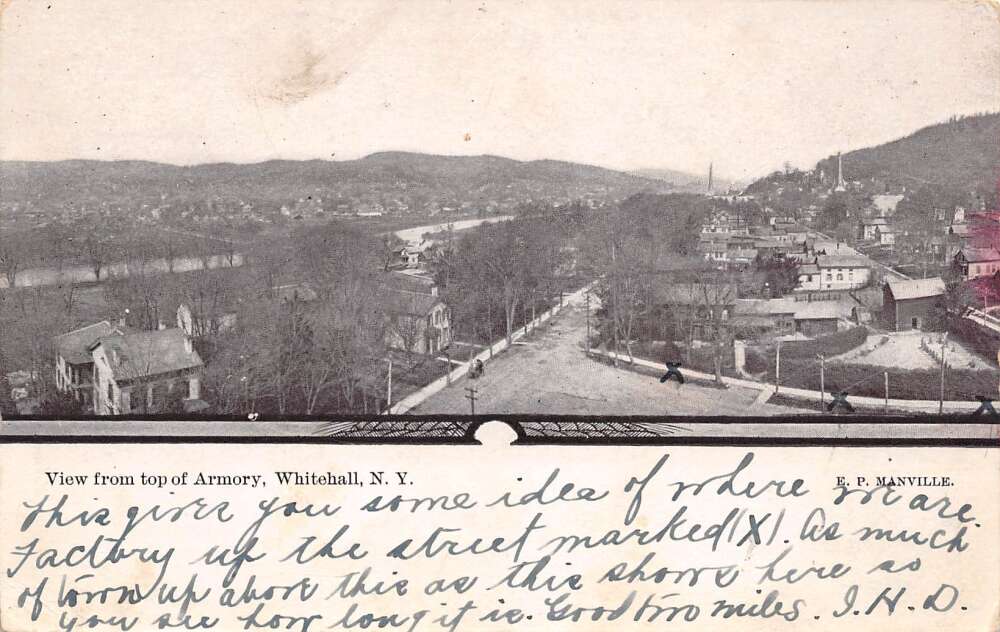 View from top of Armory, Whitehall, N. Y.
E. P. MANVILLE.
This gives you some idea of where we are.
Factory up the street marked (X). As much
of town up above this as this shows here so
you see how long it is. Good two miles. I. H. D.